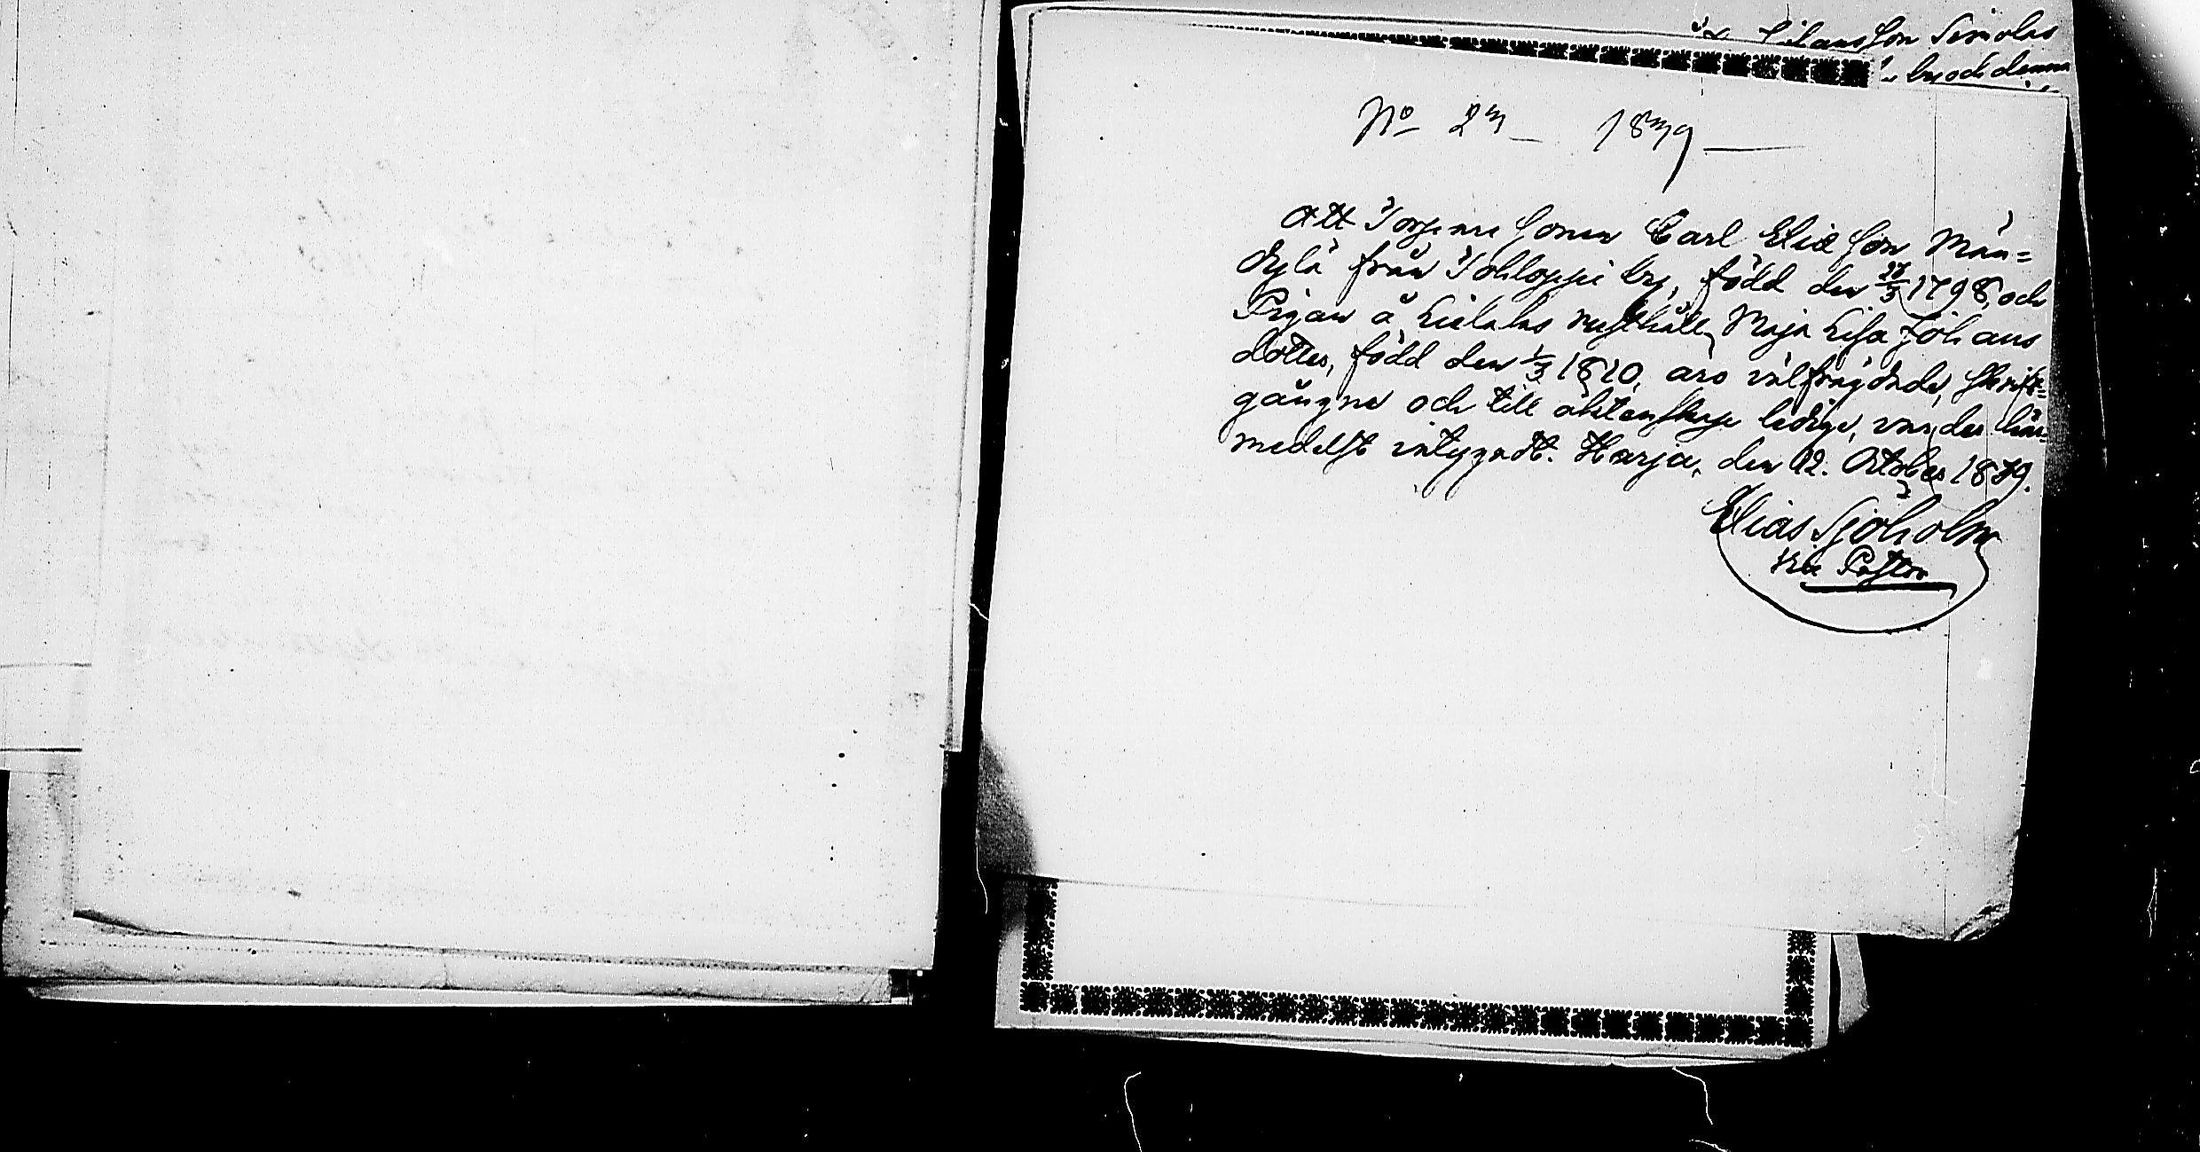 Lilausson Simolas
by och denna
No 23 — 1839 —
Att Torpare sonen Carl Eliæ son Män=
kylä från Tohloppi by, född den 27/3 1798, och
Pigan å Lielaks rusthåll, Maja Lisa Johans
dotter, född den 1/3 1810, äro välfrägdade, skrift=
gångne och till äktenskap ledige, varder här=
medelst intygadt. Harja, den 12. October 1839.
Elias Sjöholm
Vice Pastor